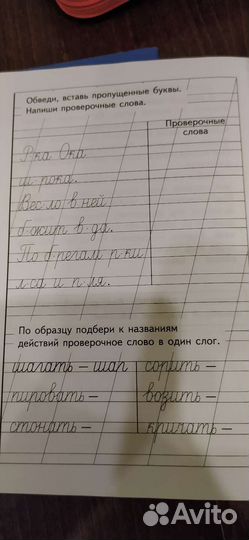 Обведи, вставь пропущенные буквы.
Напиши проверочные слова.
Проверочные
слова
Р.ка Ока
ш.рока.
Весло в ней
б.жит в.да.
По б.регам р.ки
л.са и п.ля.
По образцу подбери к названиям
действий проверочное слово в один слог.
шагать – шаг сорить –
пировать – возить –
стонать – кричать –
Avito